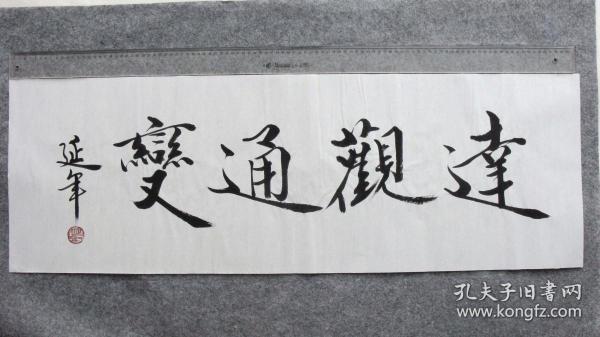 達觀通變
延年
孔夫子旧書网
www.kongfz.com